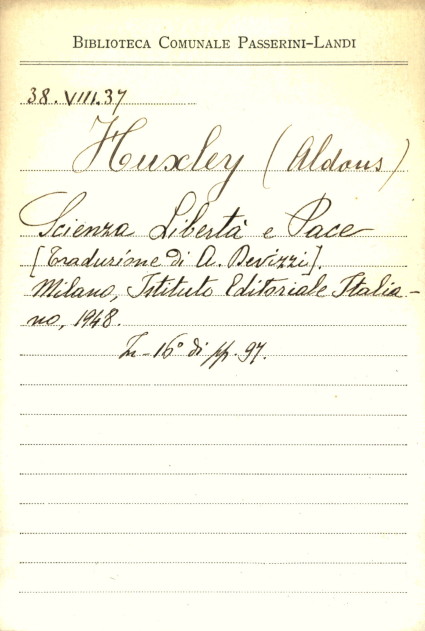 BIBLIOTECA COMUNALE PASSERINI-LANDI
38.VIII.37
Huxley (Aldous)
Scienza Libertà e Pace
[Traduzione di A. Devizzi].
Milano, Istituto Editoriale Italia-
no, 1948.
In-16° di pp. 97.